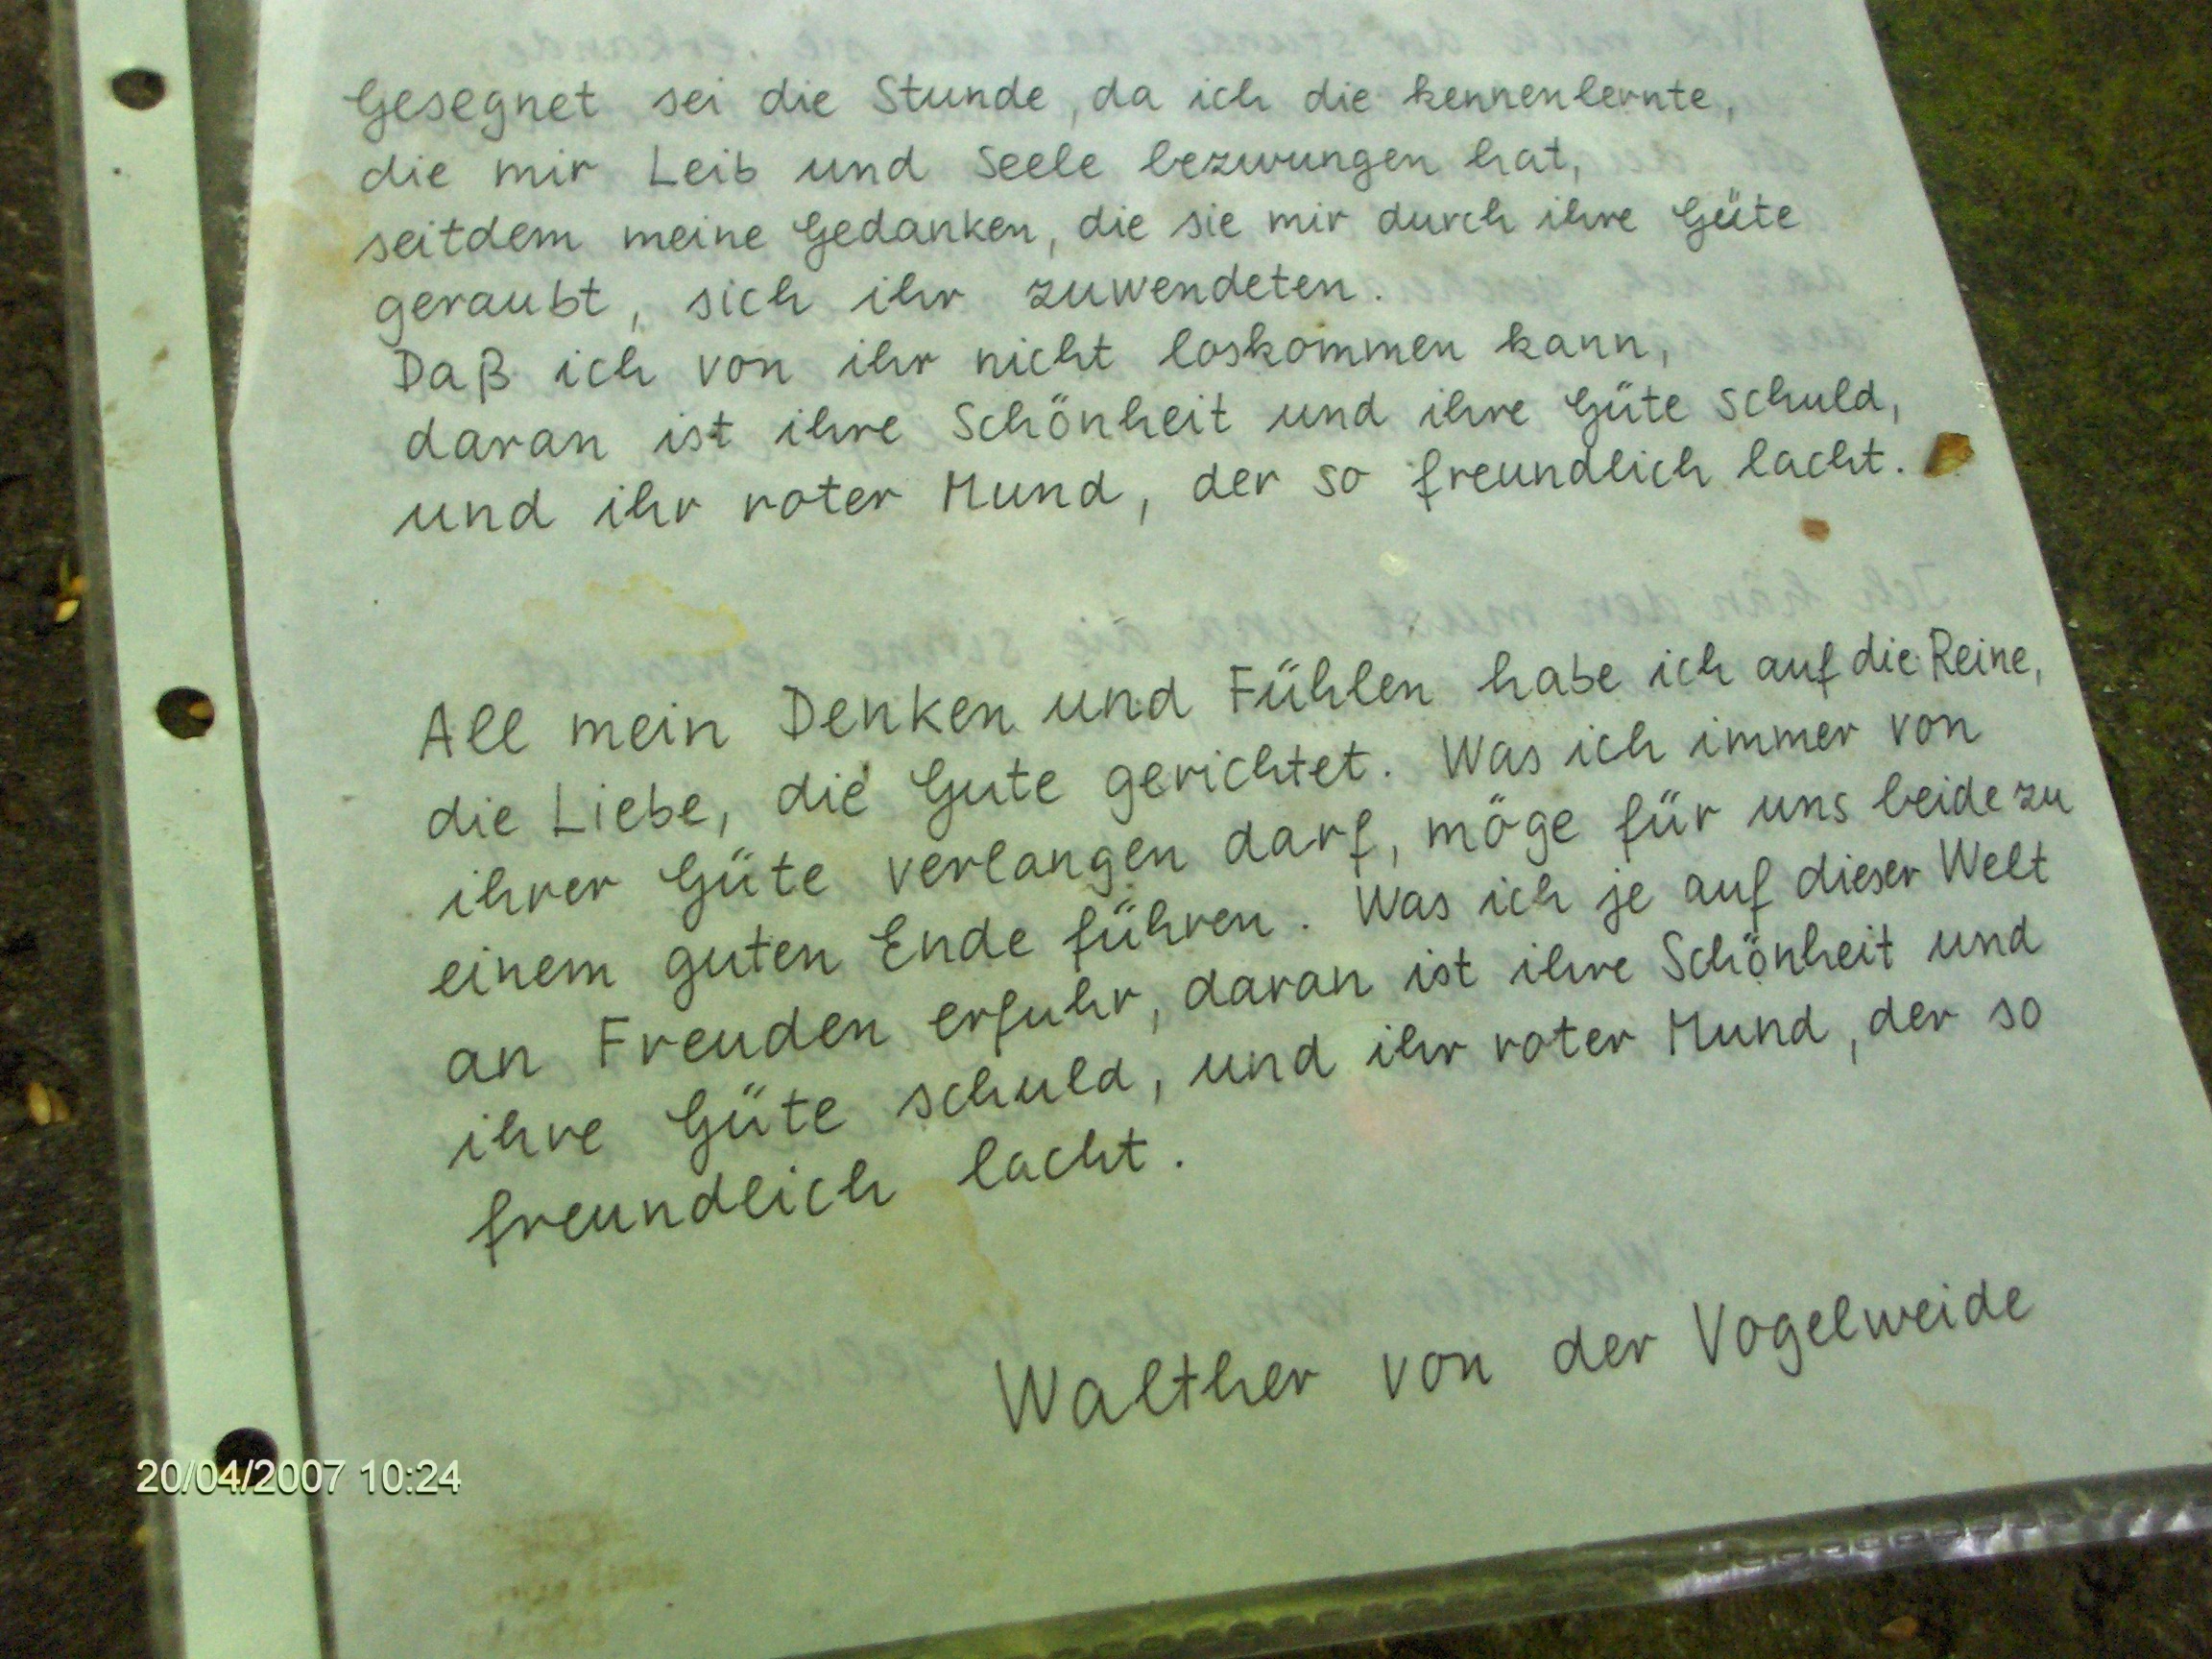 Gesegnet sei die Stunde, da ich die kennenlernte,
die mir Leib und Seele bezwungen hat,
seitdem meine Gedanken, die sie mir durch ihre Güte
geraubt, sich ihr zuwendeten.
Daß ich von ihr nicht loskommen kann,
daran ist ihre Schönheit und ihre Güte schuld,
und ihr roter Mund, der so freundlich lacht.
All mein Denken und Fühlen habe ich auf die Reine,
die Liebe, die Gute gerichtet. Was ich immer von
ihrer Güte verlangen darf, möge für uns beide zu
einem guten Ende führen. Was ich je auf dieser Welt
an Freuden erfuhr, daran ist ihre Schönheit und
ihre Güte schuld, und ihr roter Mund, der so
freundlich lacht.
Walther von der Vogelweide
20/04/2007 10:24